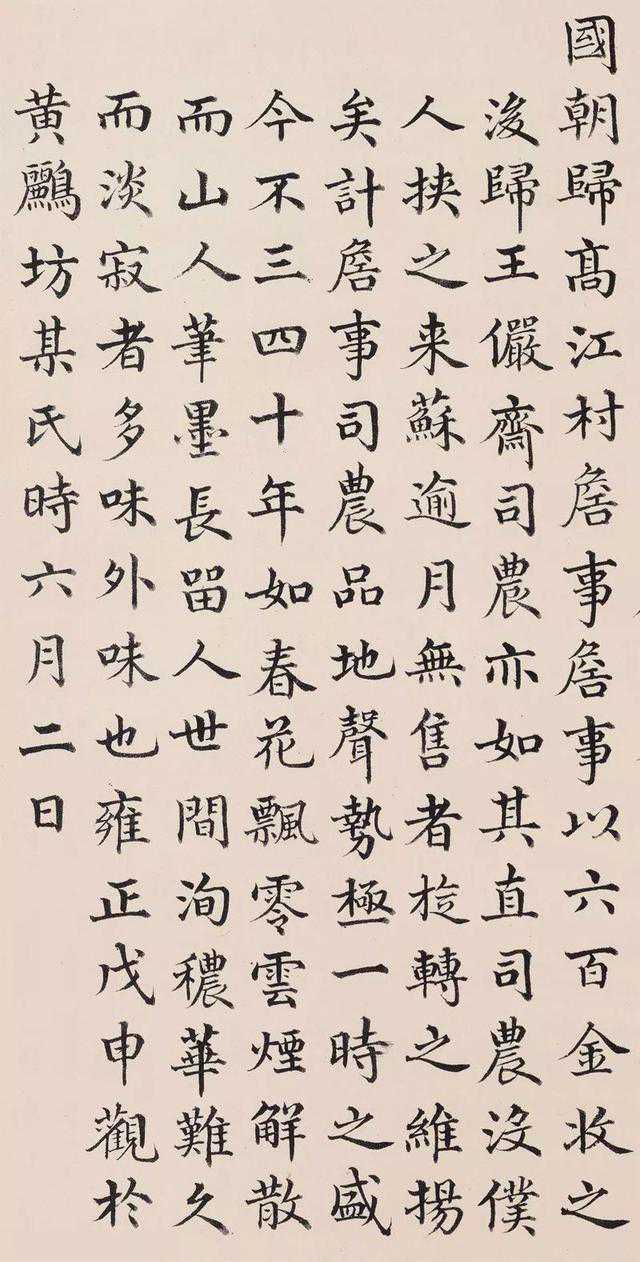 國朝歸高江村詹事詹事以六百金收之
後歸王儼齋司農亦如其直司農没僕
人挾之来蘇逾月無售者旋轉之維揚
矣計詹事司農品地聲勢極一時之盛
今不三四十年如春花飄零雲煙解散
而山人筆墨長留人世間洵穠華難久
而淡寂者多味外味也雍正戊申觀於
黄鸝坊某氏時六月二日